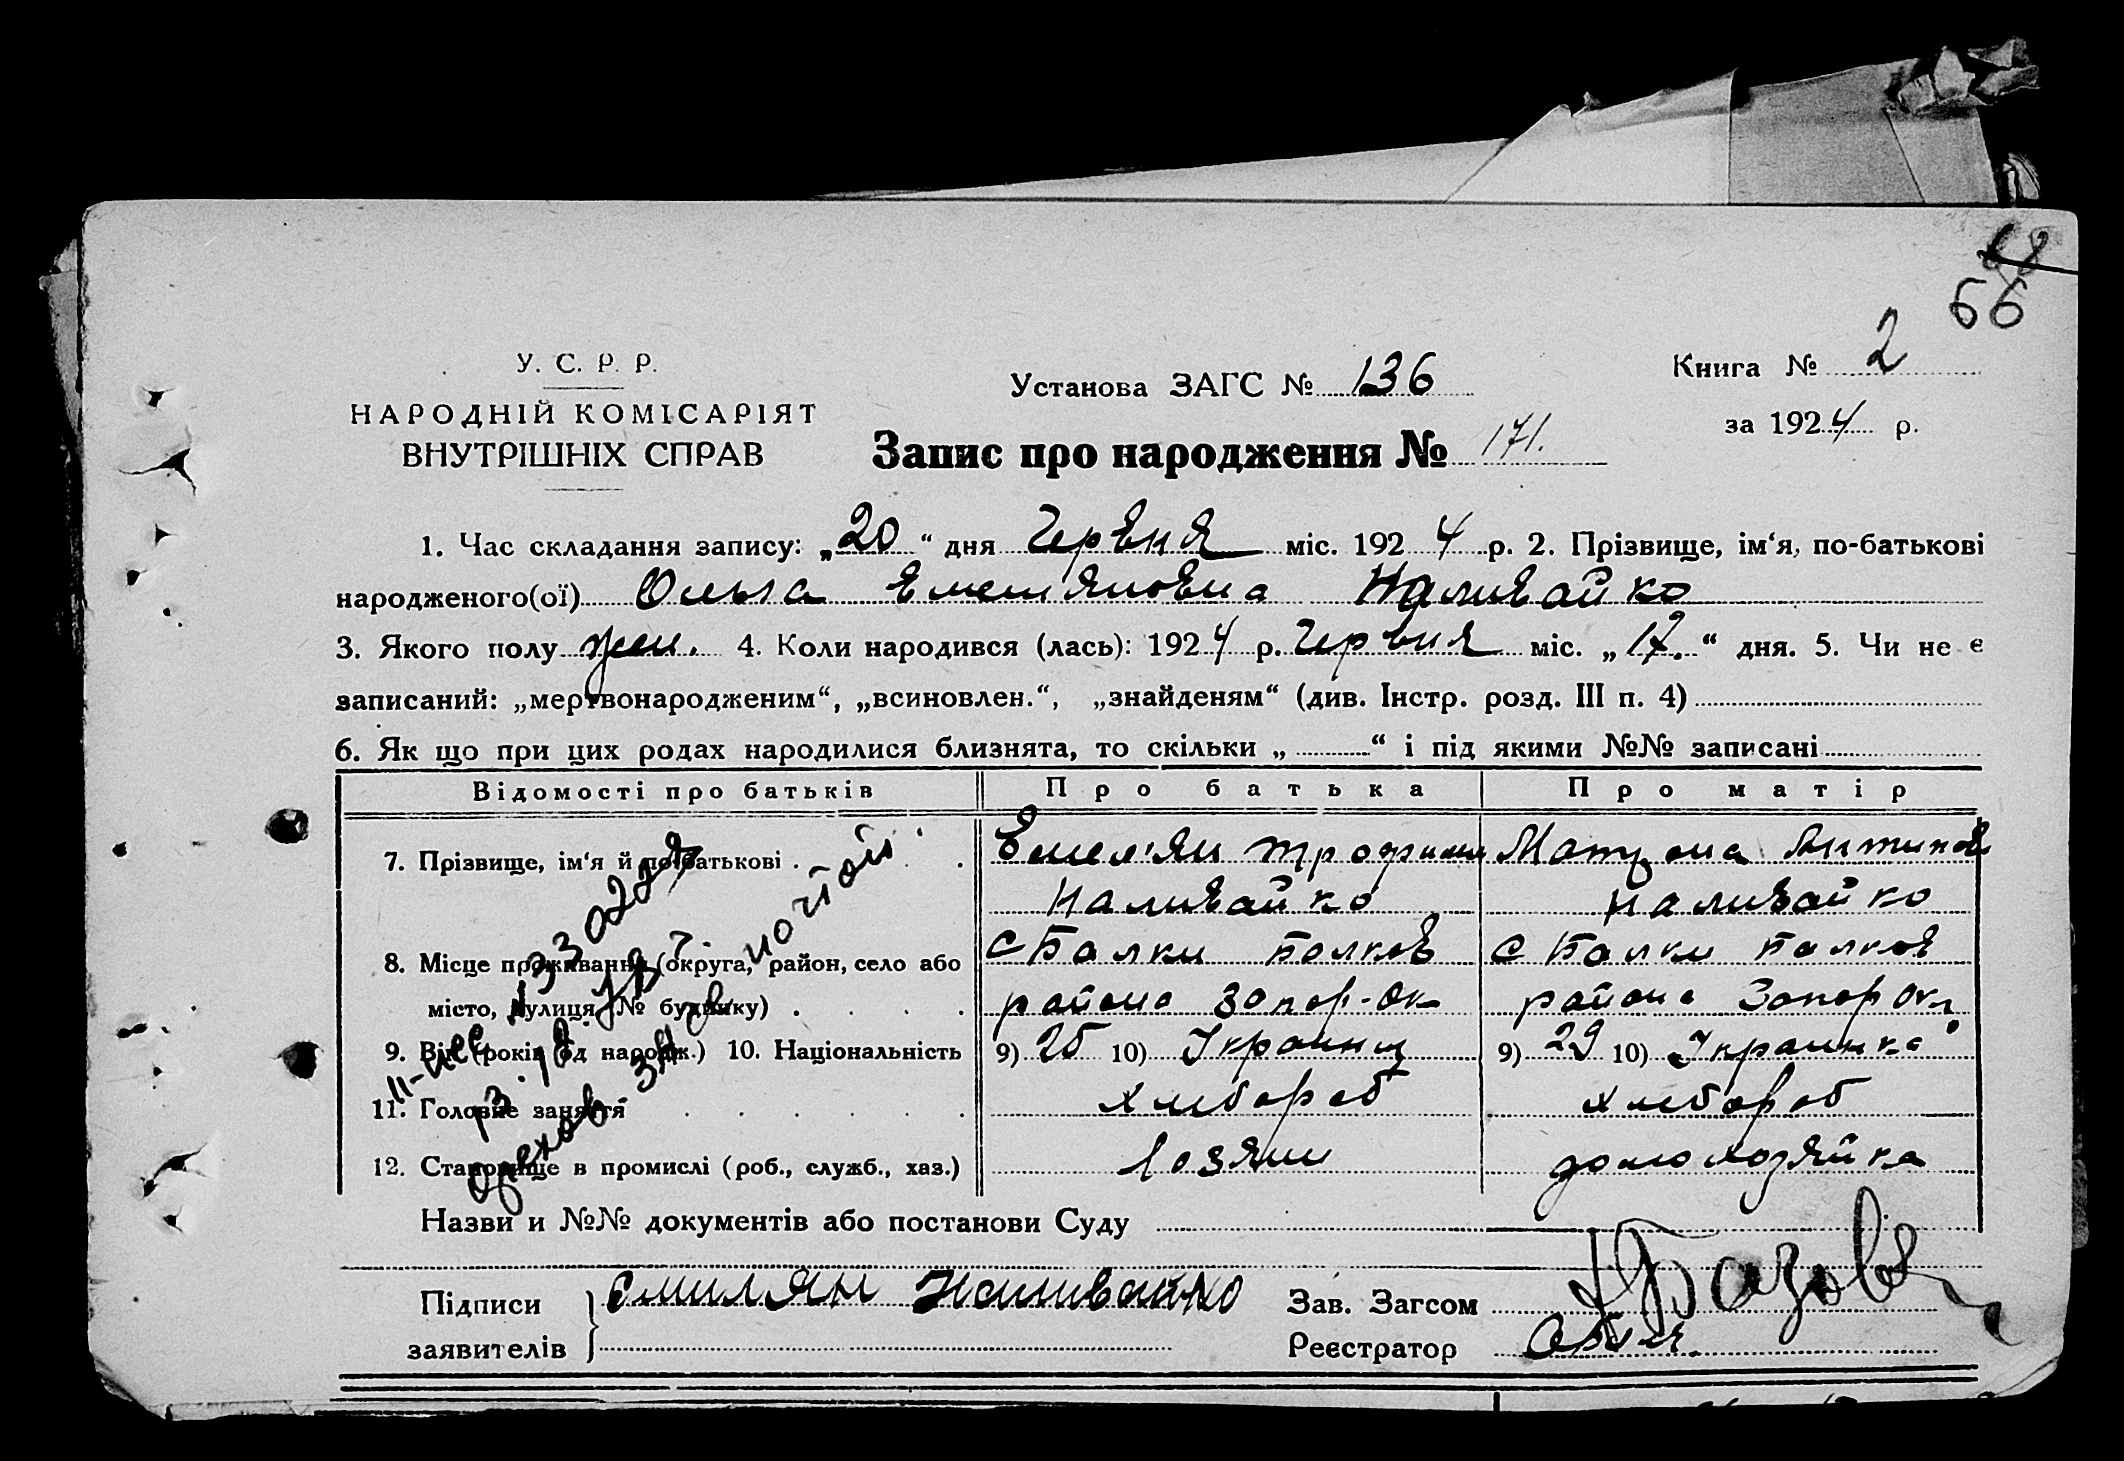 68
66
У. С. Р. Р.
НАРОДНІЙ КОМІСАРІЯТ
ВНУТРІШНІХ СПРАВ
Установа ЗАГС № 136
Книга № 2
за 1924 р.
Запис про народження № 171.
1. Час складання запису: „20“ дня Червня міс. 1924 р. 2. Прізвище, ім‘я, по-батькові
народженого(ої) Ольга Емельяновна Наливайко
3. Якого полу жен. 4. Коли народився (лась): 1924 р. Червня міс. „17.“ дня. 5. Чи не є
записаний: „мертвонародженим“, „всиновлен.“, „знайденям“ (див. Інстр. розд. III п. 4)
6. Як що при цих родах народилися близнята, то скільки „ “ і під якими №№ записані
Відомості про батьків Про батька Про матір
7. Прізвище, ім‘я й по-батькові Емел'ян Трофим Матрона Антипов
Наливайко Наливайко
8. Місце проживання (округа, район, село або С Балки Балков С Балки Балков
місто, вулиця, № будинку) района Запор-Ок района Запор Окр
9. Вік (років од народж.) 10. Національність 9) 25 10) Украинц 9) 29 10) Украинка
11. Головне заняття хлебороб хлебороб
12. Становище в промислі (роб., служб., хаз.) хозяин домохозяйка
Орехов
Назви и №№ документів або постанови Суду
Підписи заявителів Емилян Наливайко
Зав. Загсом
Реєстратор